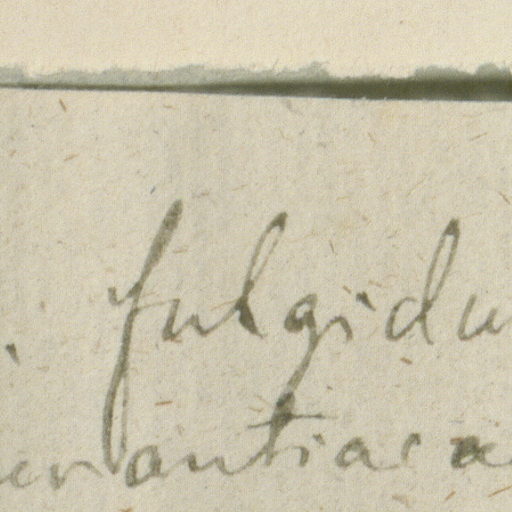 . fulgidu
urantiaca